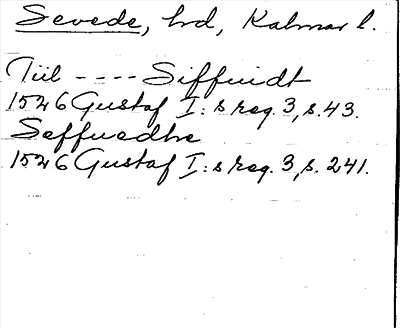 Sevede, hrd, Kalmar l.
Tiil ---- Siffuidt
1526 Gustaf I:s reg. 3, s. 43.
Seffuedhe
1526 Gustaf I:s reg. 3, s. 241.